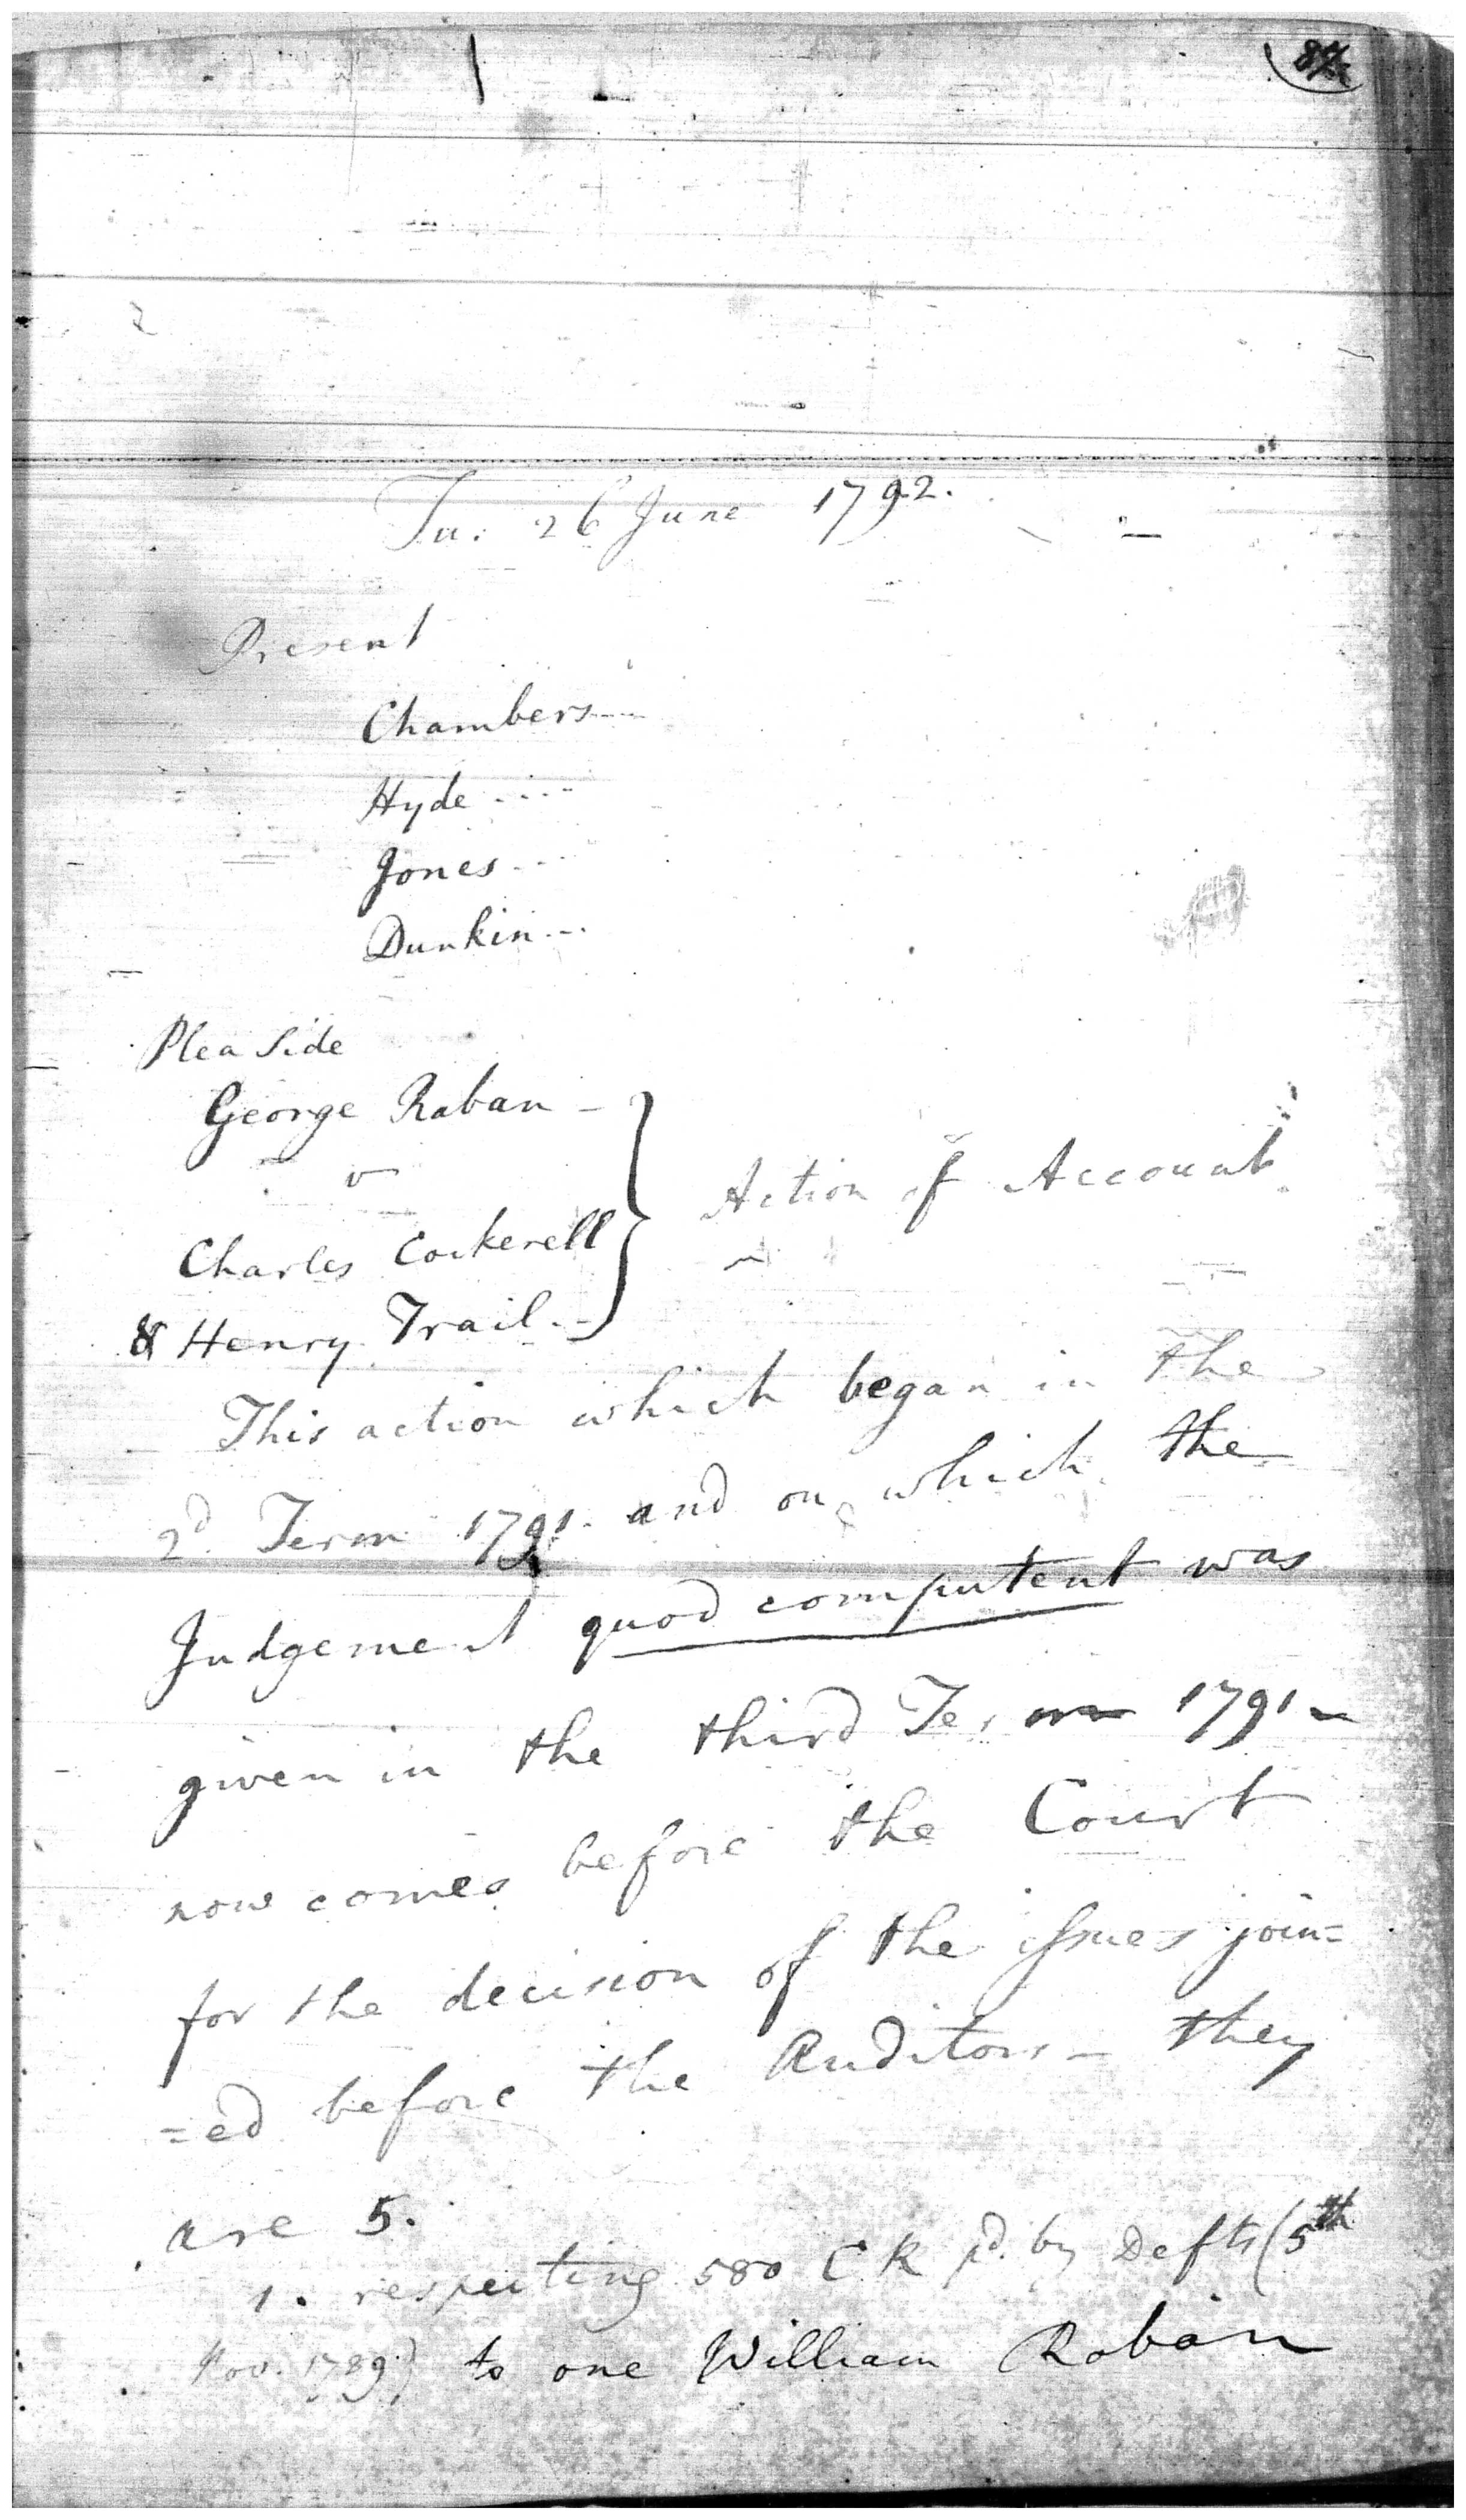 Tu. 26 June 1792.
Present
Chambers
Hyde
Jones
Dunkin
Plea Side
George Raban
v
Charles Cockerell
& Henry Trail
Action of Account
This action which began in the
2d. Term 1791. and on which the
Judgement quod computent was
given in the third Term 1791
now comes before the Court
for the decision of the issues join=
=ed before the Auditors - they
are 5.
1. respecting 580 C R pd. by Defts (5th
Nov. 1789) to one William Raban